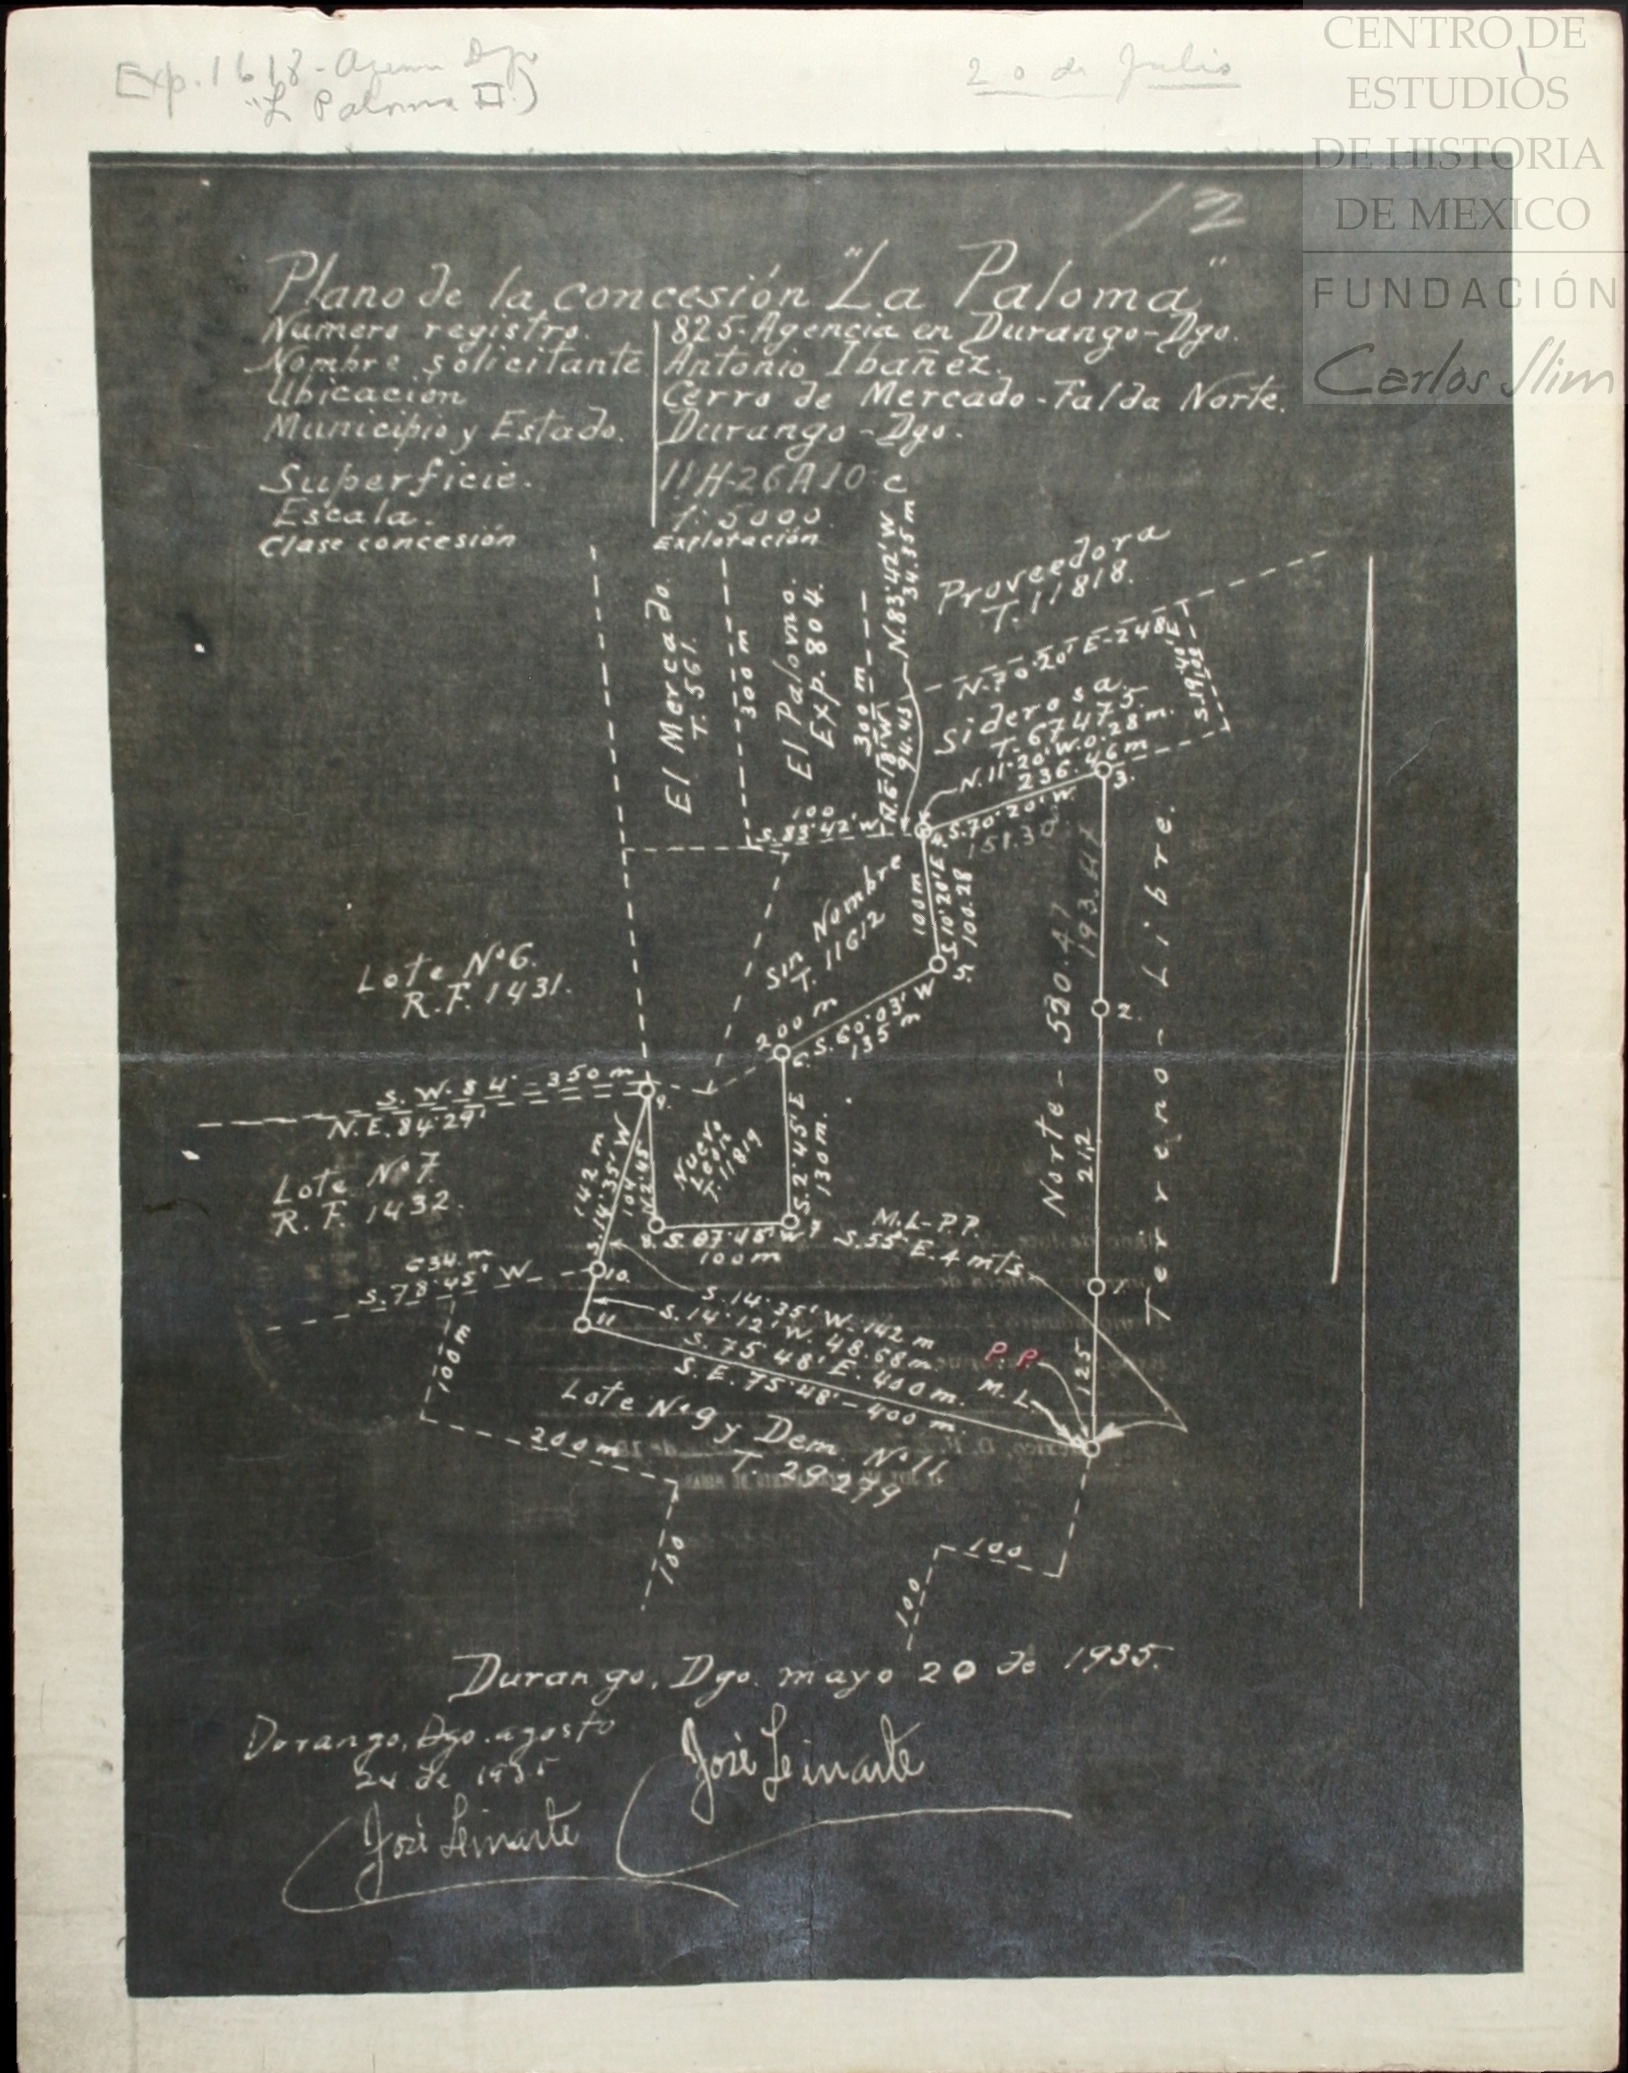 Exp. 1618 - Agencia Dgo
"La Paloma II")
20 de Julio
1
CENTRO DE
ESTUDIOS
DE HISTORIA
DE MEXICO
FUNDACIÓN
Carlos Slim
12
Plano de la concesión "La Paloma"
Numero registro. 825. Agencia en Durango-Dgo.
Nombre solicitante Antonio Ibañez.
Ubicación Cerro de Mercado - Falda Norte.
Municipio y Estado. Durango - Dgo.
Superficie. 11H-26A10 c
Escala. 1:5000.
Clase concesión Explotación
El Mercado.
T. 561.
300 m
El Palomo.
Exp. 804.
300 m
N.6·18'W
94.45
N.83·42'W
34.35 m
Proveedora
T. 11818.
N.70·20'E-248
S.19·40'E
Siderosa.
T. 67475.
N.11·20'W.0.28 m.
236.46 m
3.
S.70·20'W.
151.30
4.
100
S.83·42'W
Sin Nombre
T. 11612
100 m
S.10·20'E
100.28
5.
200 m
S.60·03'W
135 m
6.
Norte - 530.47
193.47
2.
212
Terreno - Libre.
Lote Nº6.
R.F. 1431.
S.W. 84 - 350 m
N.E. 84·29'
9.
Lote Nº7
R.F. 1432.
142 m
S.14·35'W
104
N2·45'
Nuevo
León
T. 11819
S.2·45'E
130 m.
7
8.
S.87·45'W
100 m
M.L-P.P.
S.55·E.4 mts.
1.
634 m
S.78·45'W
10.
11
S.14·35'W-142 m
S.14·12'W. 48.68 m.
S.75·48'E. 400 m.
S.E. 75·48' - 400 m.
P.P.
M.L.
125
100 m
Lote Nº9 y Dem. Nº11
T. 29279
200 m
100
100
100
Durango, Dgo. mayo 20 de 1935.
José Leinarte
Durango, Dgo. agosto
24 de 1935
José Leinarte